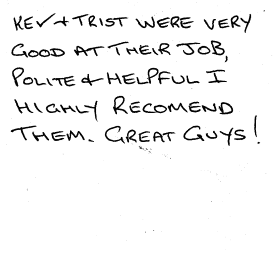 KEV + TRIST WERE VERY
GOOD AT THEIR JOB,
POLITE & HELPFUL I
HIGHLY RECOMEND
THEM. GREAT GUYS!